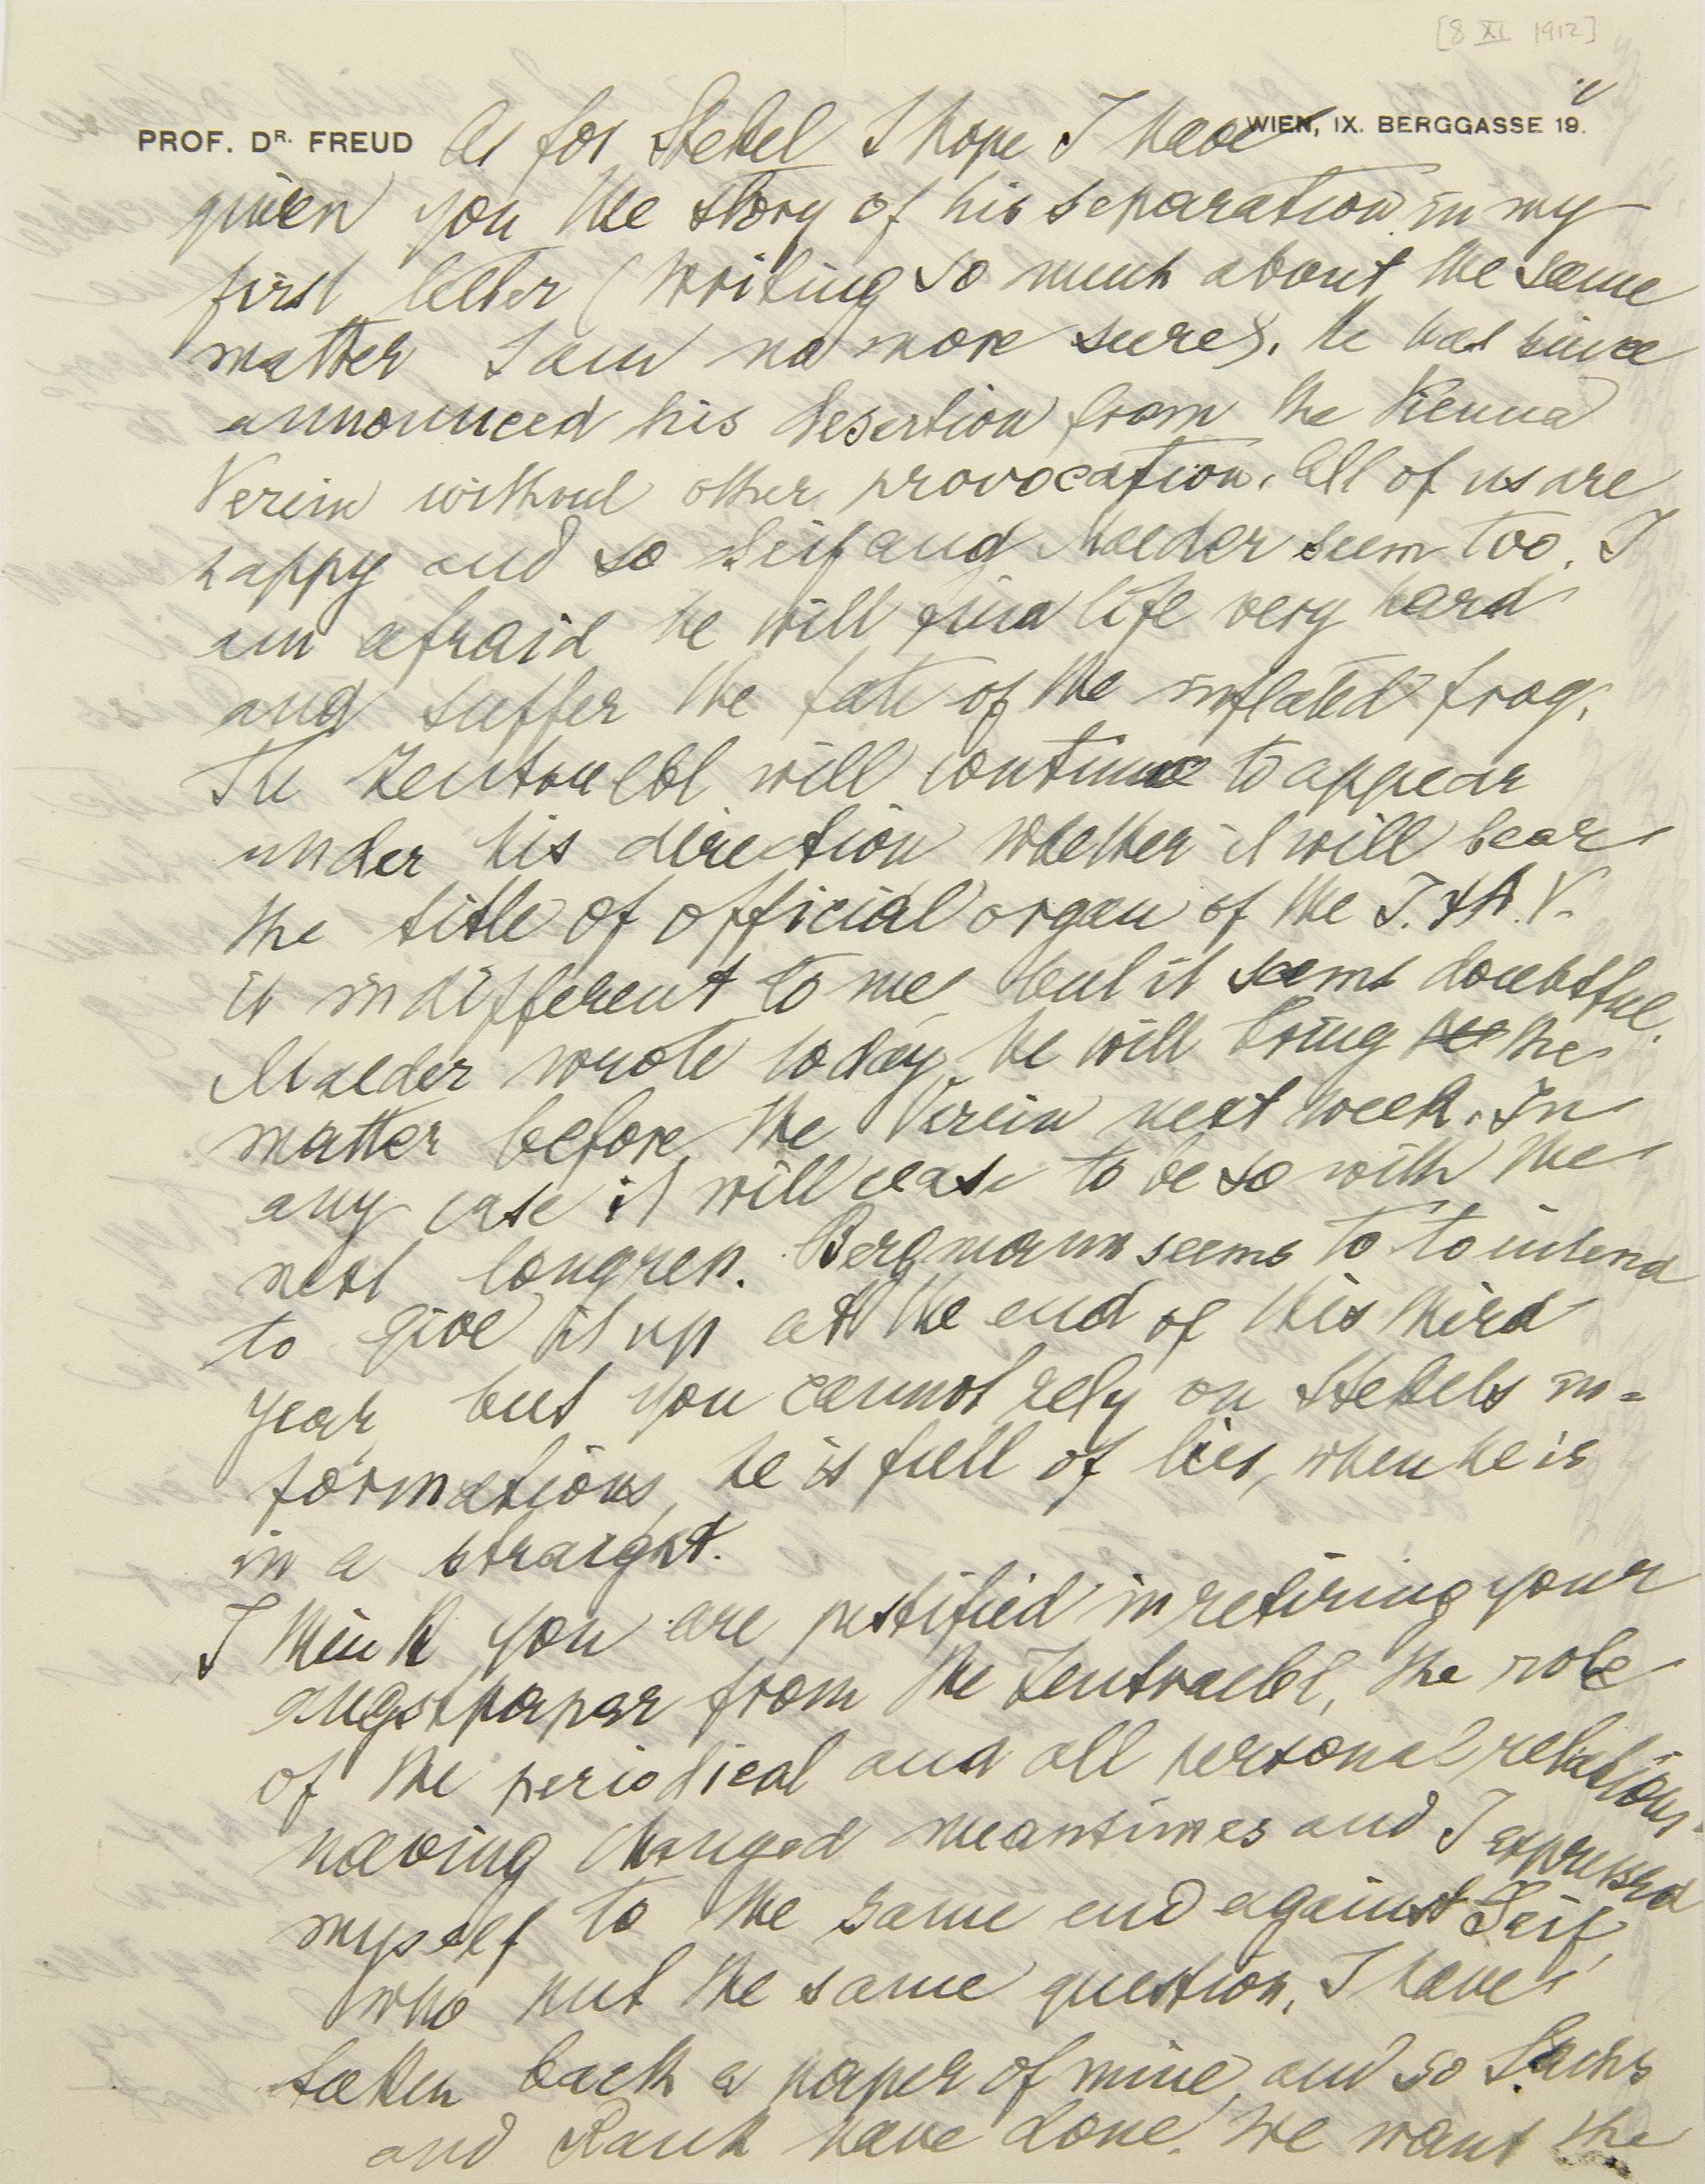 [8 XI 1912]
PROF. DR. FREUD
WIEN, IX. BERGGASSE 19.
As for Stekel I hope I have
given you the story of his separation in my
first letter (Writing so much about the same
matter I am no more sure). He has since
announced his desertion from the Vienna
Verein without other provocation. All of us are
happy and so Seif and Maeder seem too. I
am afraid he will find life very hard
and suffer the fate of the inflated frog.
The Zentralbl will continue to appear
under his direction whether it will bear
the title of official organ of the I.ΨA.V.
is indifferent to me but it seems doubtful.
Maeder wrote today he will bring the
matter before the Verein next week. In
any case it will cease to be so with the
next Congress. Bergmann seems to to intend
to give it up at the end of this third
year but you cannot rely on Stekels in=
formations, he is full of lies, when he is
in a straight.
I think you are justified in retiring your
angstpaper from the Zentralbl, the role
of the periodical and all personal relations
having changed meantimes and I expressed
myself to the same end against Seif,
who put the same question. I have
taken back a paper of mine and so Sachs
and Rank have done. We want the